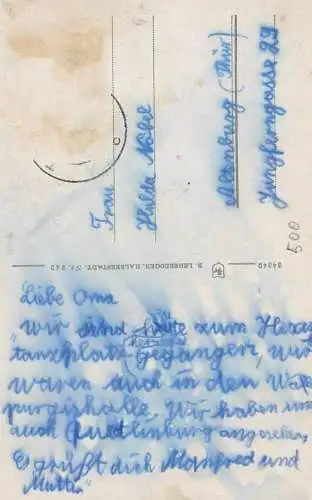 Frau
Hulda Nöbel
Altenburg (Thür)
Jungferngasse 29
500
B. LEHRBODGEN, HALBERSTADT. Nr. 949
34949
Liebe Oma
"Wir sind heute zum Hexen
tanzplatz gegangen, wir
waren auch in den Wal
purgishalle. Wir haben uns
auch Quedlinburg angesehen,
Es grüßt dich Manfred und
Mutti"